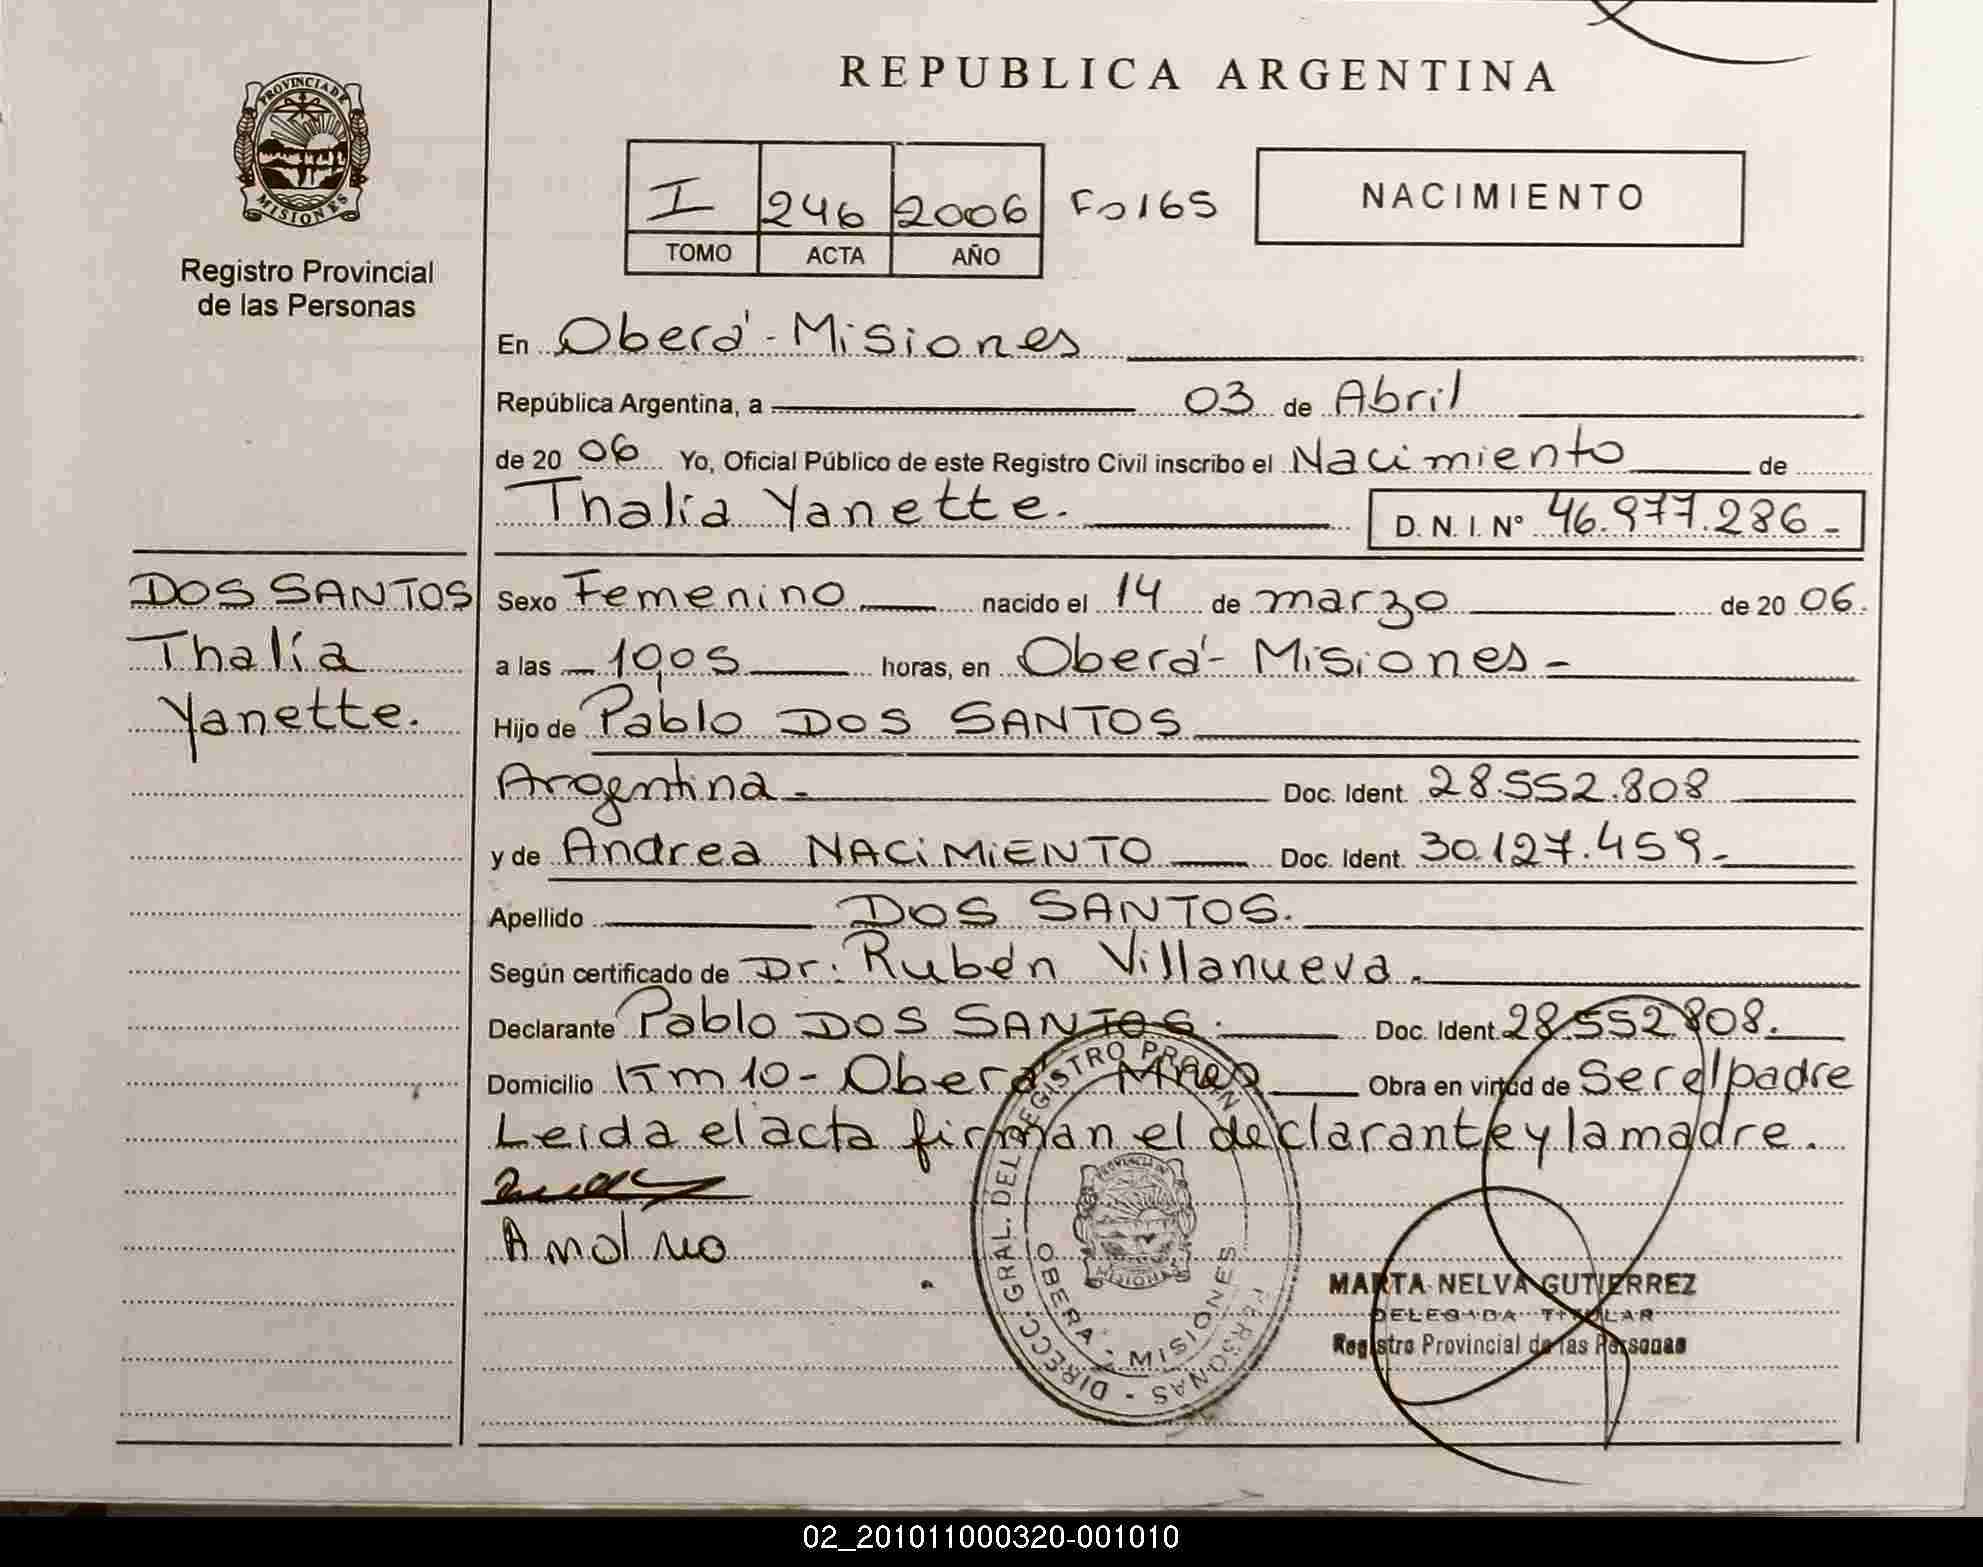 PROVINCIA DE
MISIONES
Registro Provincial
de las Personas
REPUBLICA ARGENTINA
I 246 2006 Fo 165
TOMO ACTA AÑO
NACIMIENTO
En Oberá - Misiones
República Argentina, a 03 de Abril
de 20 06 Yo, Oficial Público de este Registro Civil inscribo el Nacimiento de
Thalía Yanette.
D. N. I. N° 46.977.286 -
DOS SANTOS
Thalía
Yanette.
Sexo Femenino nacido el 14 de marzo de 20 06.
a las 10,05 horas, en Oberá - Misiones -
Hijo de Pablo DOS SANTOS
Argentina - Doc. Ident. 28.552.808
y de Andrea NACIMIENTO Doc. Ident. 30.127.459 -
Apellido DOS SANTOS.
Según certificado de Dr. Rubén Villanueva.
Declarante Pablo DOS SANTOS. Doc. Ident. 28.552.808.
Domicilio Km 10 - Oberá Mnes Obra en virtud de Ser el padre
Leida el acta firman el declarante y la madre.
DIRECC. GRAL. DEL REGISTRO PERSONAS
OBERA - MISIONES
PROVINCIA DE
MISIONES
MARTA NELVA GUTIERREZ
DELEGADA TITULAR
Registro Provincial de las Personas
02_201011000320-001010